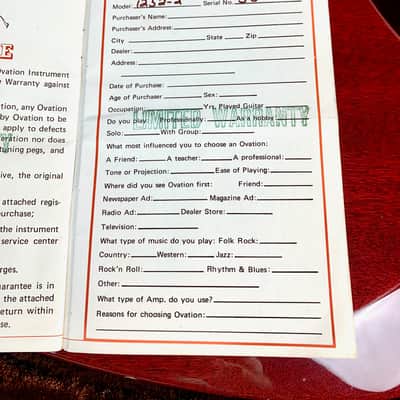 E
Ovation Instrument
Warranty against
tion, any Ovation
by Ovation to be
apply to defects
eration nor does
tuning pegs, and
ive, the original
attached regis-
purchase;
the instrument
service center
rges.
uarantee is in
the attached
return within
se.
Model Serial No.
Purchaser's Name:
Purchaser's Address:
City State Zip
Dealer:
Address:
Date of Purchase:
Age of Purchaser Sex:
Occupation: Yrs. Played Guitar
Do you play Professionally: As a hobby
LIMITED WARRANTY
Solo: With Group:
What most influenced you to choose an Ovation:
A Friend: A teacher: A professional:
Tone or Projection: Ease of Playing:
Where did you see Ovation first: Friend:
Newspaper Ad: Magazine Ad:
Radio Ad: Dealer Store:
Television:
What type of music do you play: Folk Rock:
Country: Western: Jazz:
Rock'n Roll: Rhythm & Blues:
Other:
What type of Amp. do you use?
Reasons for choosing Ovation: